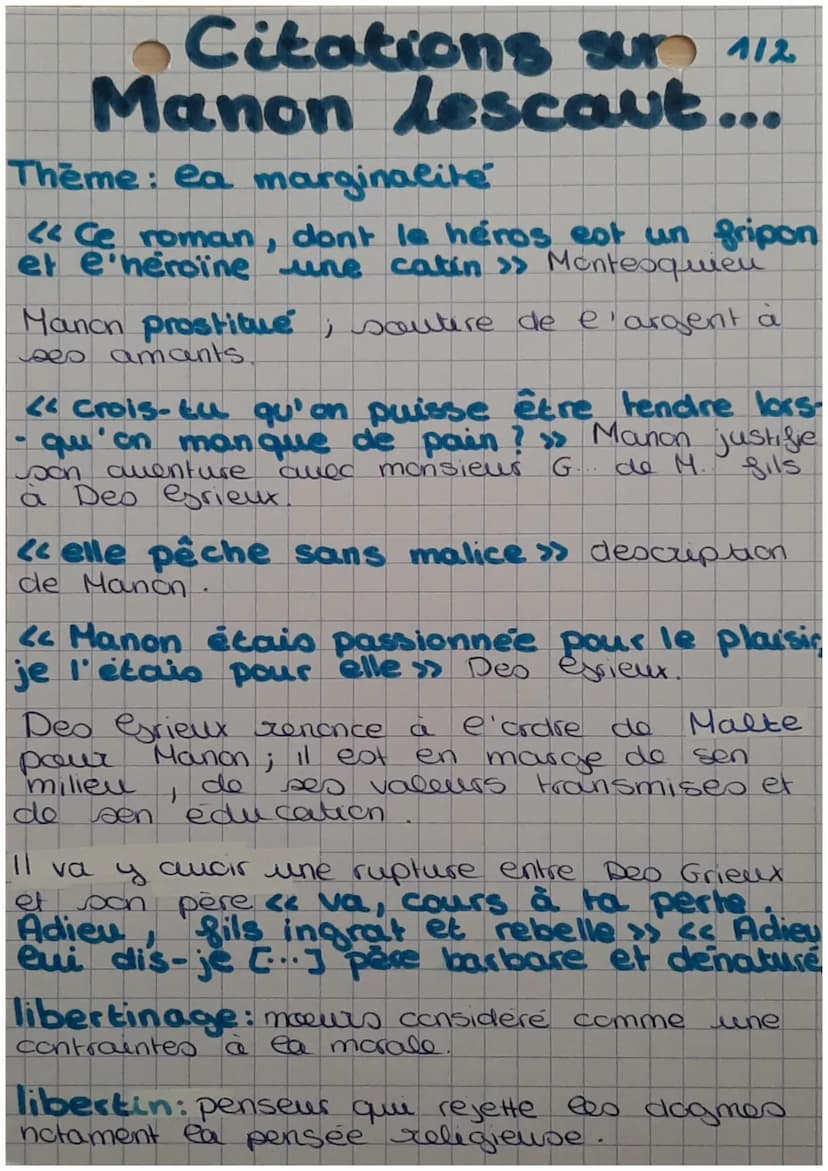 Citations sur 1/2
Manon Lescaut...
Thème: la marginalité
<< Ce roman, dont le héros est un fripon
et l'héroïne une catin >> Montesquieu
Manon prostitué ; soutire de l'argent à
ses amants.
<< Crois-tu qu'on puisse être tendre lors-
-qu'on manque de pain ? >> Manon justifie
son aventure avec monsieur G... de M. fils
à Des Grieux.
<< elle pêche sans malice >> description
de Manon.
<< Manon étais passionnée pour le plaisir,
je l'étais pour elle >> Des Grieux.
Des Grieux renonce à l'ordre de Malte
pour Manon ; il est en marge de son
milieu, de ses valeurs transmises et
de son éducation.
Il va y avoir une rupture entre Des Grieux
et son père << va, cours à ta perte.
Adieu, fils ingrat et rebelle >> << Adieu
lui dis-je [...] père barbare et dénaturé
libertinage: mœurs considéré comme une
contraintes à la morale.
libertin: penseur qui rejette les dogmes
notament la pensée religieuse.